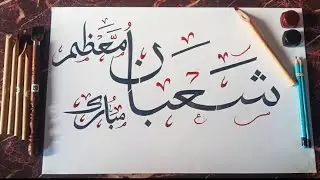 شَعبان مُعَظَّم
مبارک